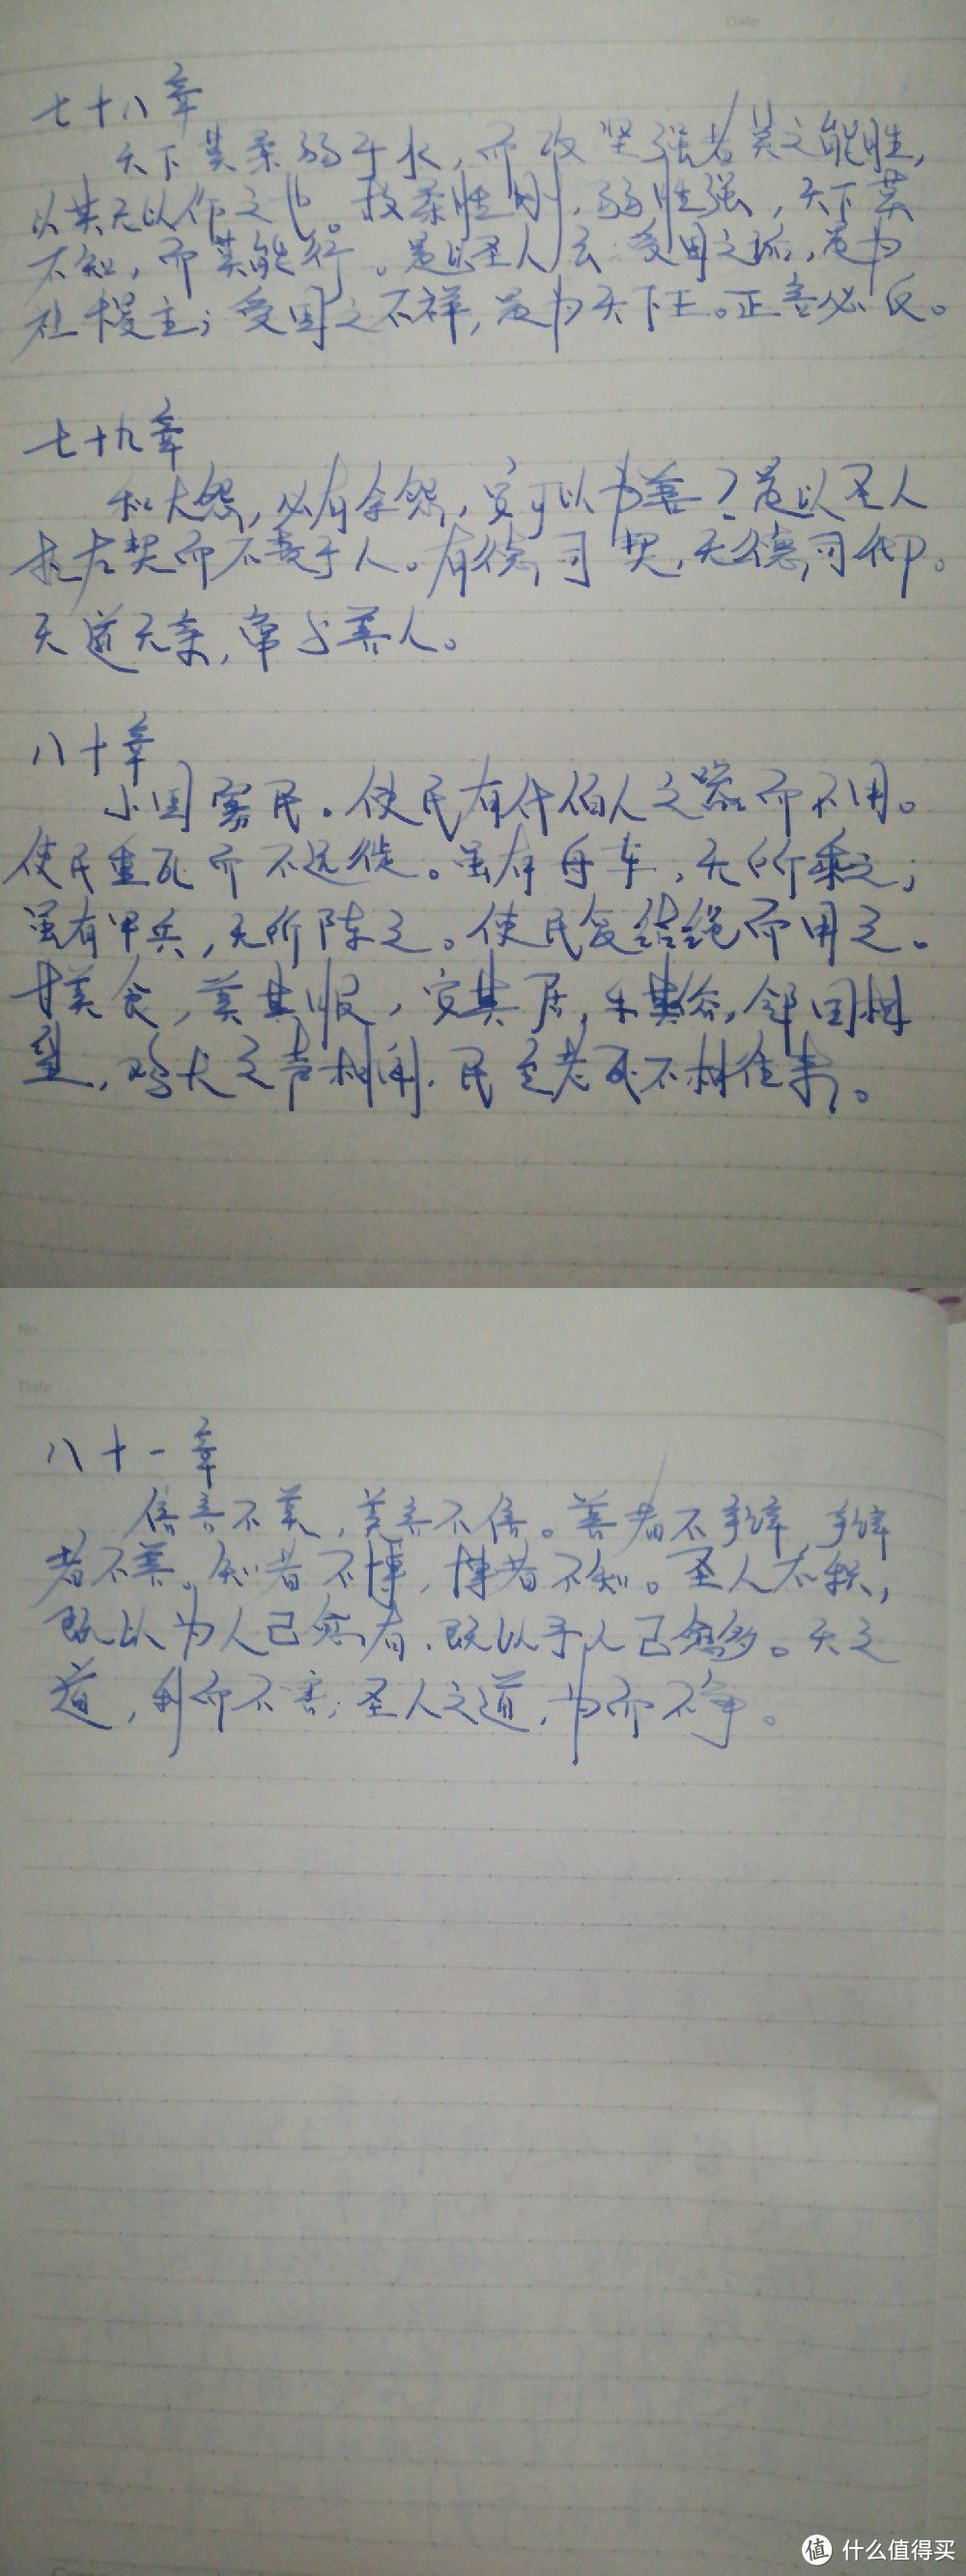 Date
七十八章
天下莫柔弱于水，而攻坚强者莫之能胜，
以其无以作之也。故柔胜刚，弱胜强，天下莫
不知，而莫能行。是以圣人云：受国之垢，是为
社稷主；受国之不祥，是为天下王。正言必反。
七十九章
和大怨，必有余怨，安可以为善？是以圣人
执左契而不责于人。有德司契，无德司彻。
天道无亲，常与善人。
八十章
小国寡民。使民有什伯人之器而不用。
使民重死而不远徙。虽有舟车，无所乘之；
虽有甲兵，无所陈之。使民复结绳而用之。
甘美食，美其服，安其居，乐其俗，邻国相
望，鸡犬之声相闻，民至老死不相往来。
No.
Date
八十一章
信言不美，美言不信。善者不辩，辩
者不善。知者不博，博者不知。圣人不积，
既以为人己愈有，既以予人己愈多。天之
道，利而不害；圣人之道，为而不争。
值 什么值得买